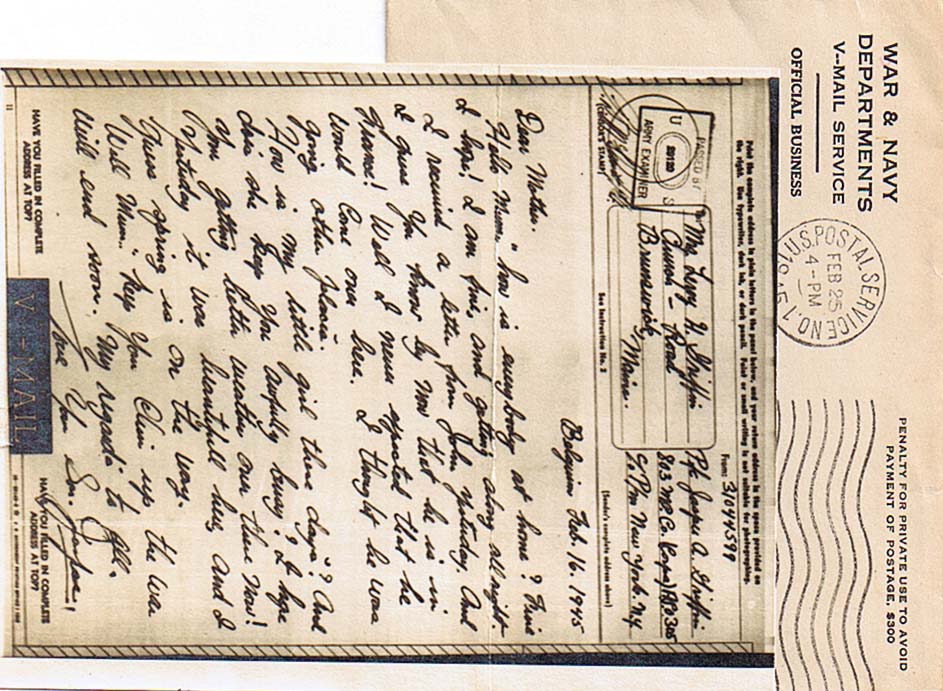 WAR & NAVY
DEPARTMENTS
V--MAIL SERVICE
OFFICIAL BUSINESS
U.S. POSTAL SERVICE NO. 1
FEB 25
4-PM
1945
PENALTY FOR PRIVATE USE TO AVOID
PAYMENT OF POSTAGE, $300
Print the complete address in plain letters in the panel below, and your return address in the space provided on
the right. Use typewriter, dark ink, or dark pencil. Faint or small writing is not suitable for photographing.
PASSED BY
U S
ARMY EXAMINER
(CENSOR'S STAMP)
To
H. Griffin
Road
Brunswick,
Maine.
See Instruction No. 2
From:
31044599
Pvt. A. Griffin
803 M.P. Co. (Corps) APO 305
c/o P/m New York. N.Y.
(Sender's complete address above)
Belgium Feb. 16. 1945
Dear Mother.
Hello Mum, how is everybody at home? Fine
I hope! I am fine, and getting along all right
I received a letter from John yesterday. And
I guess you know by now that he is in
France! Well I never expected that he
would come over here. I thought he was
going other places.
How is my little girl these days? And
does she keep you awfully busy? I hope
you getting better weather over there now!
Yesterday it was beautiful here and I
guess spring is on the way.
Well Mum, keep you chin up the war
will end soon. My regards to all.
Love You Son.
HAVE YOU FILLED IN COMPLETE
ADDRESS AT TOP?
V - MAIL
HAVE YOU FILLED IN COMPLETE
ADDRESS AT TOP?